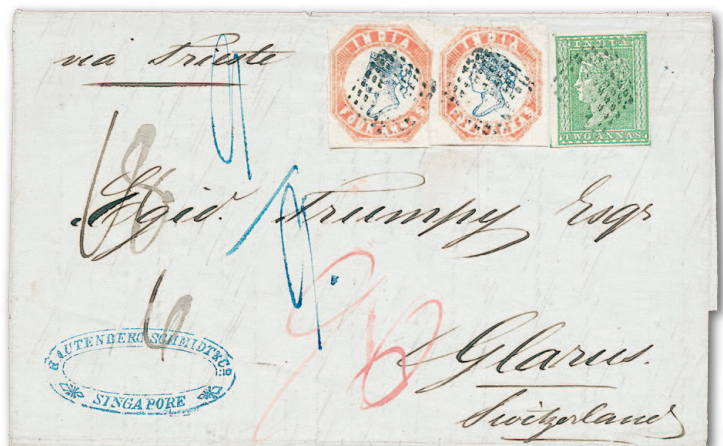 via Trieste
INDIA
FOUR ANNAS
INDIA
FOUR ANNAS
INDIA
TWO ANNAS
Egid. Trümpy Esqr
Glarus.
Switzerland
RAUTENBERG SCHMIDT & CO
SINGAPORE